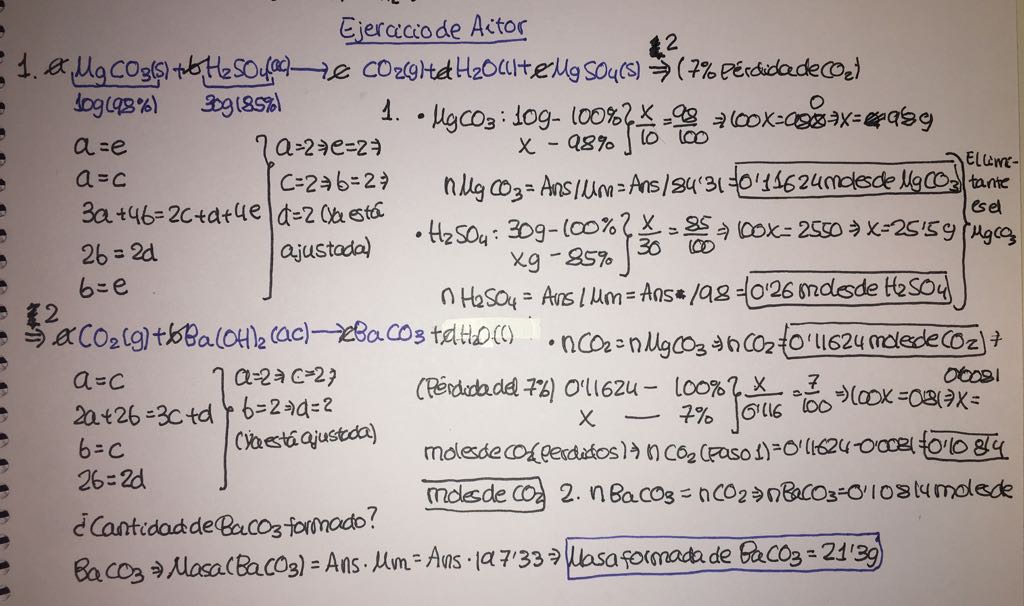 Ejercicio de Aitor
1. MgCO3(s) + H2SO4(ac) → CO2(g) + H2O(l) + MgSO4(s) ⇒ 2 (7% pérdida de CO2)
10g (98%) 30g (85%)
a=e
a=c
3a+4b=2c+d+4e
2b=2d
b=e
a=2⇒e=2⇒
c=2⇒b=2⇒
d=2 (Ya está
ajustada)
1. • MgCO3: 10g - 100% } x/10 = 98/100 ⇒ 100x=980 ⇒ x=9'8g
x - 98%
nMgCO3 = Ans/Mm = Ans/84'31 = 0'11624 moles de MgCO3
• H2SO4: 30g - 100% } x/30 = 85/100 ⇒ 100x = 2550 ⇒ x=25'5g
xg - 85%
nH2SO4 = Ans/Mm = Ans/98 = 0'26 moles de H2SO4
El limi-
tante
es el
MgCO3
2
⇒ CO2(g) + Ba(OH)2(ac) → BaCO3 + H2O(l)
a=c
2a+2b=3c+d
b=c
2b=2d
a=2⇒c=2⇒
b=2⇒d=2
(Ya está ajustada)
• nCO2 = nMgCO3 ⇒ nCO2 = 0'11624 moles de CO2 ⇒
(Pérdida del 7%) 0'11624 - 100% } x/0'116 = 7/100 ⇒ 100x = 0'81 ⇒ x= 0'0081
x — 7%
moles de CO2 (perdidos) ⇒ nCO2 (paso 1) = 0'11624-0'0081 = 0'10814
moles de CO2 2. nBaCO3 = nCO2 ⇒ nBaCO3 = 0'10814 moles de
¿Cantidad de BaCO3 formado?
BaCO3 ⇒ Masa (BaCO3) = Ans · Mm = Ans · 197'33 ⇒ Masa formada de BaCO3 = 21'3g